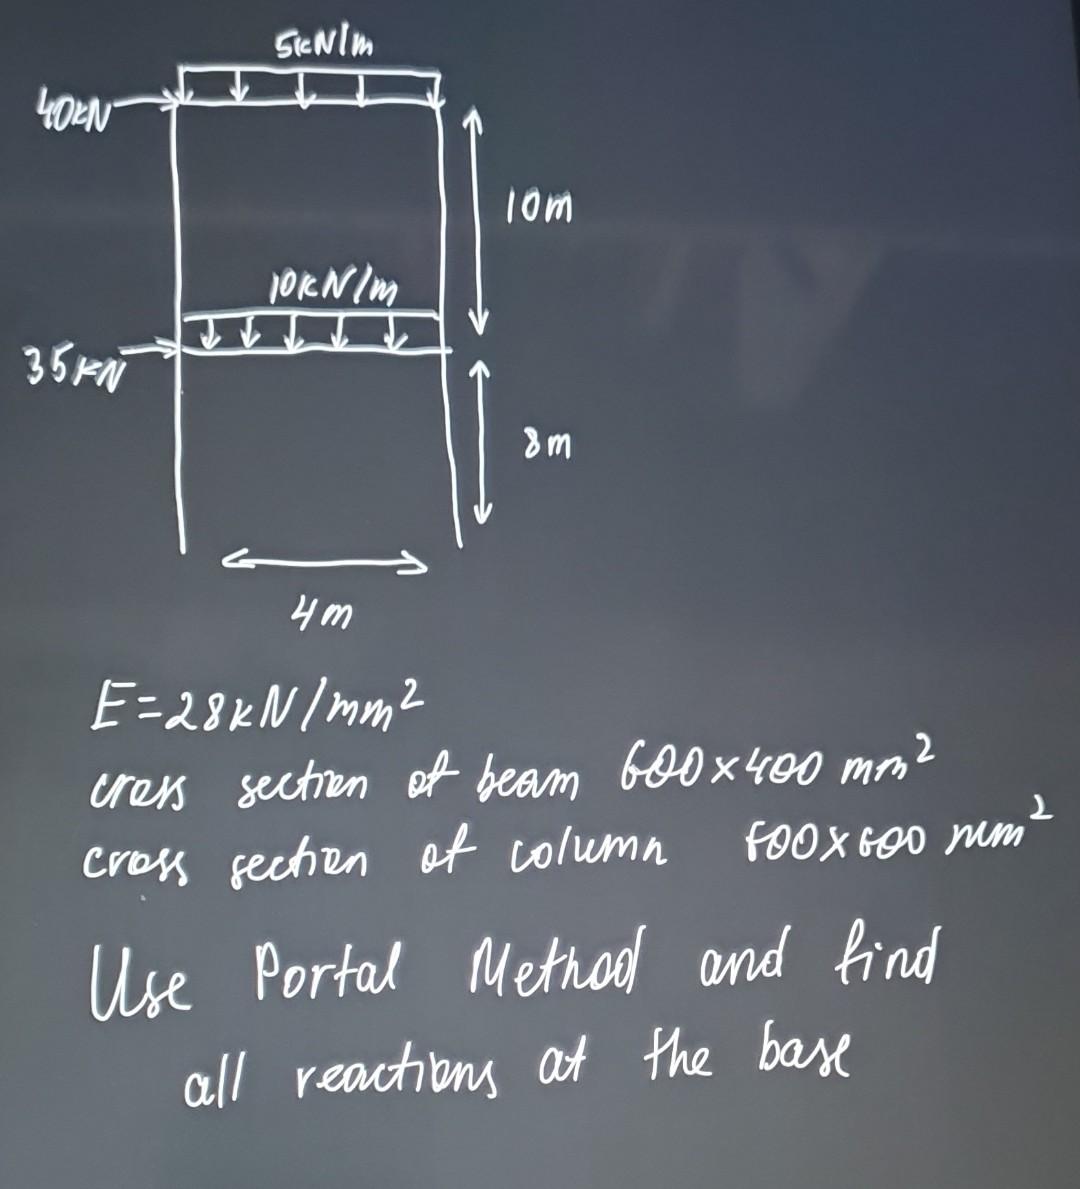 5kN/m
40kN
10m
10kN/m
35kN
8m
4m
E=28kN/mm²
cross section of beam 600×400 mm²
cross section of column 500×600 mm²
Use Portal Method and find
all reactions at the base